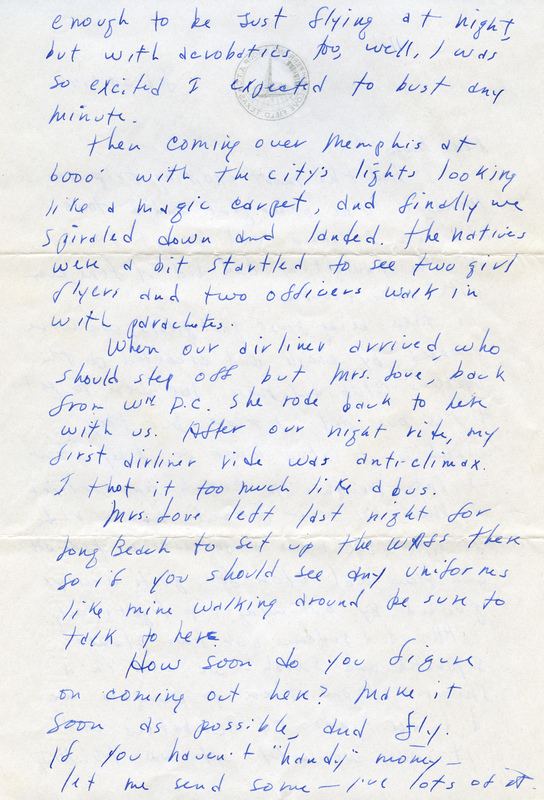 enough to be just flying at night,
but with acrobatics too, well, I was
so excited I expected to bust any
minute.
Then coming over Memphis at
6000' with the city's lights looking
like a magic carpet, and finally we
spiraled down and landed. The natives
were a bit startled to see two girl
flyers and two officers walk in
with parachutes.
When our airliner arrived, who
should step off but Mrs. Love, back
from Wn D.C. She rode back to here
with us. After our night ride, my
first airliner ride was anti-climax.
I thot it too much like a bus.
Mrs. Love left last night for
Long Beach to set up the WAFS there
so if you should see any uniforms
like mine walking around be sure to
talk to her.
How soon do you figure
on coming out here? Make it
soon as possible, and fly.
If you haven't "handy" money—
let me send some — I've lots of it.